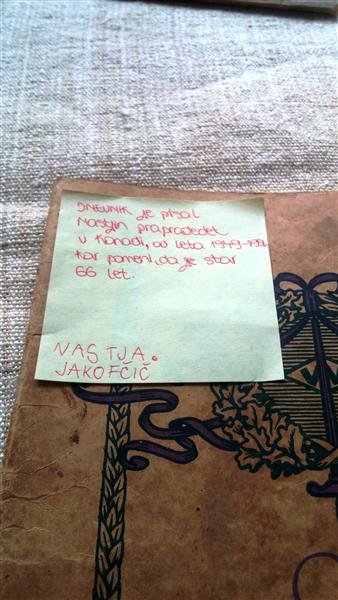 DNEVNIK je pisal
Nastjin prapradedek
v Kanadi, od leta 1949-1951
kar pomeni, da je star
66 let.
NASTJA
JAKOFČIČ